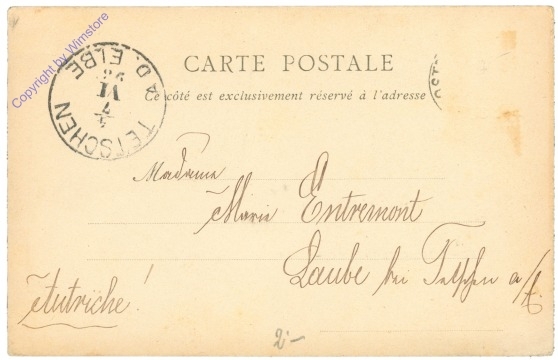 CARTE POSTALE
Ce côté est exclusivement réservé à l'adresse
TETSCHEN A.D. ELBE
VI
Madame
Marie Entremont
Laube bei Tetschen a/E.
Autriche!
2-
Copyright by Wimstore